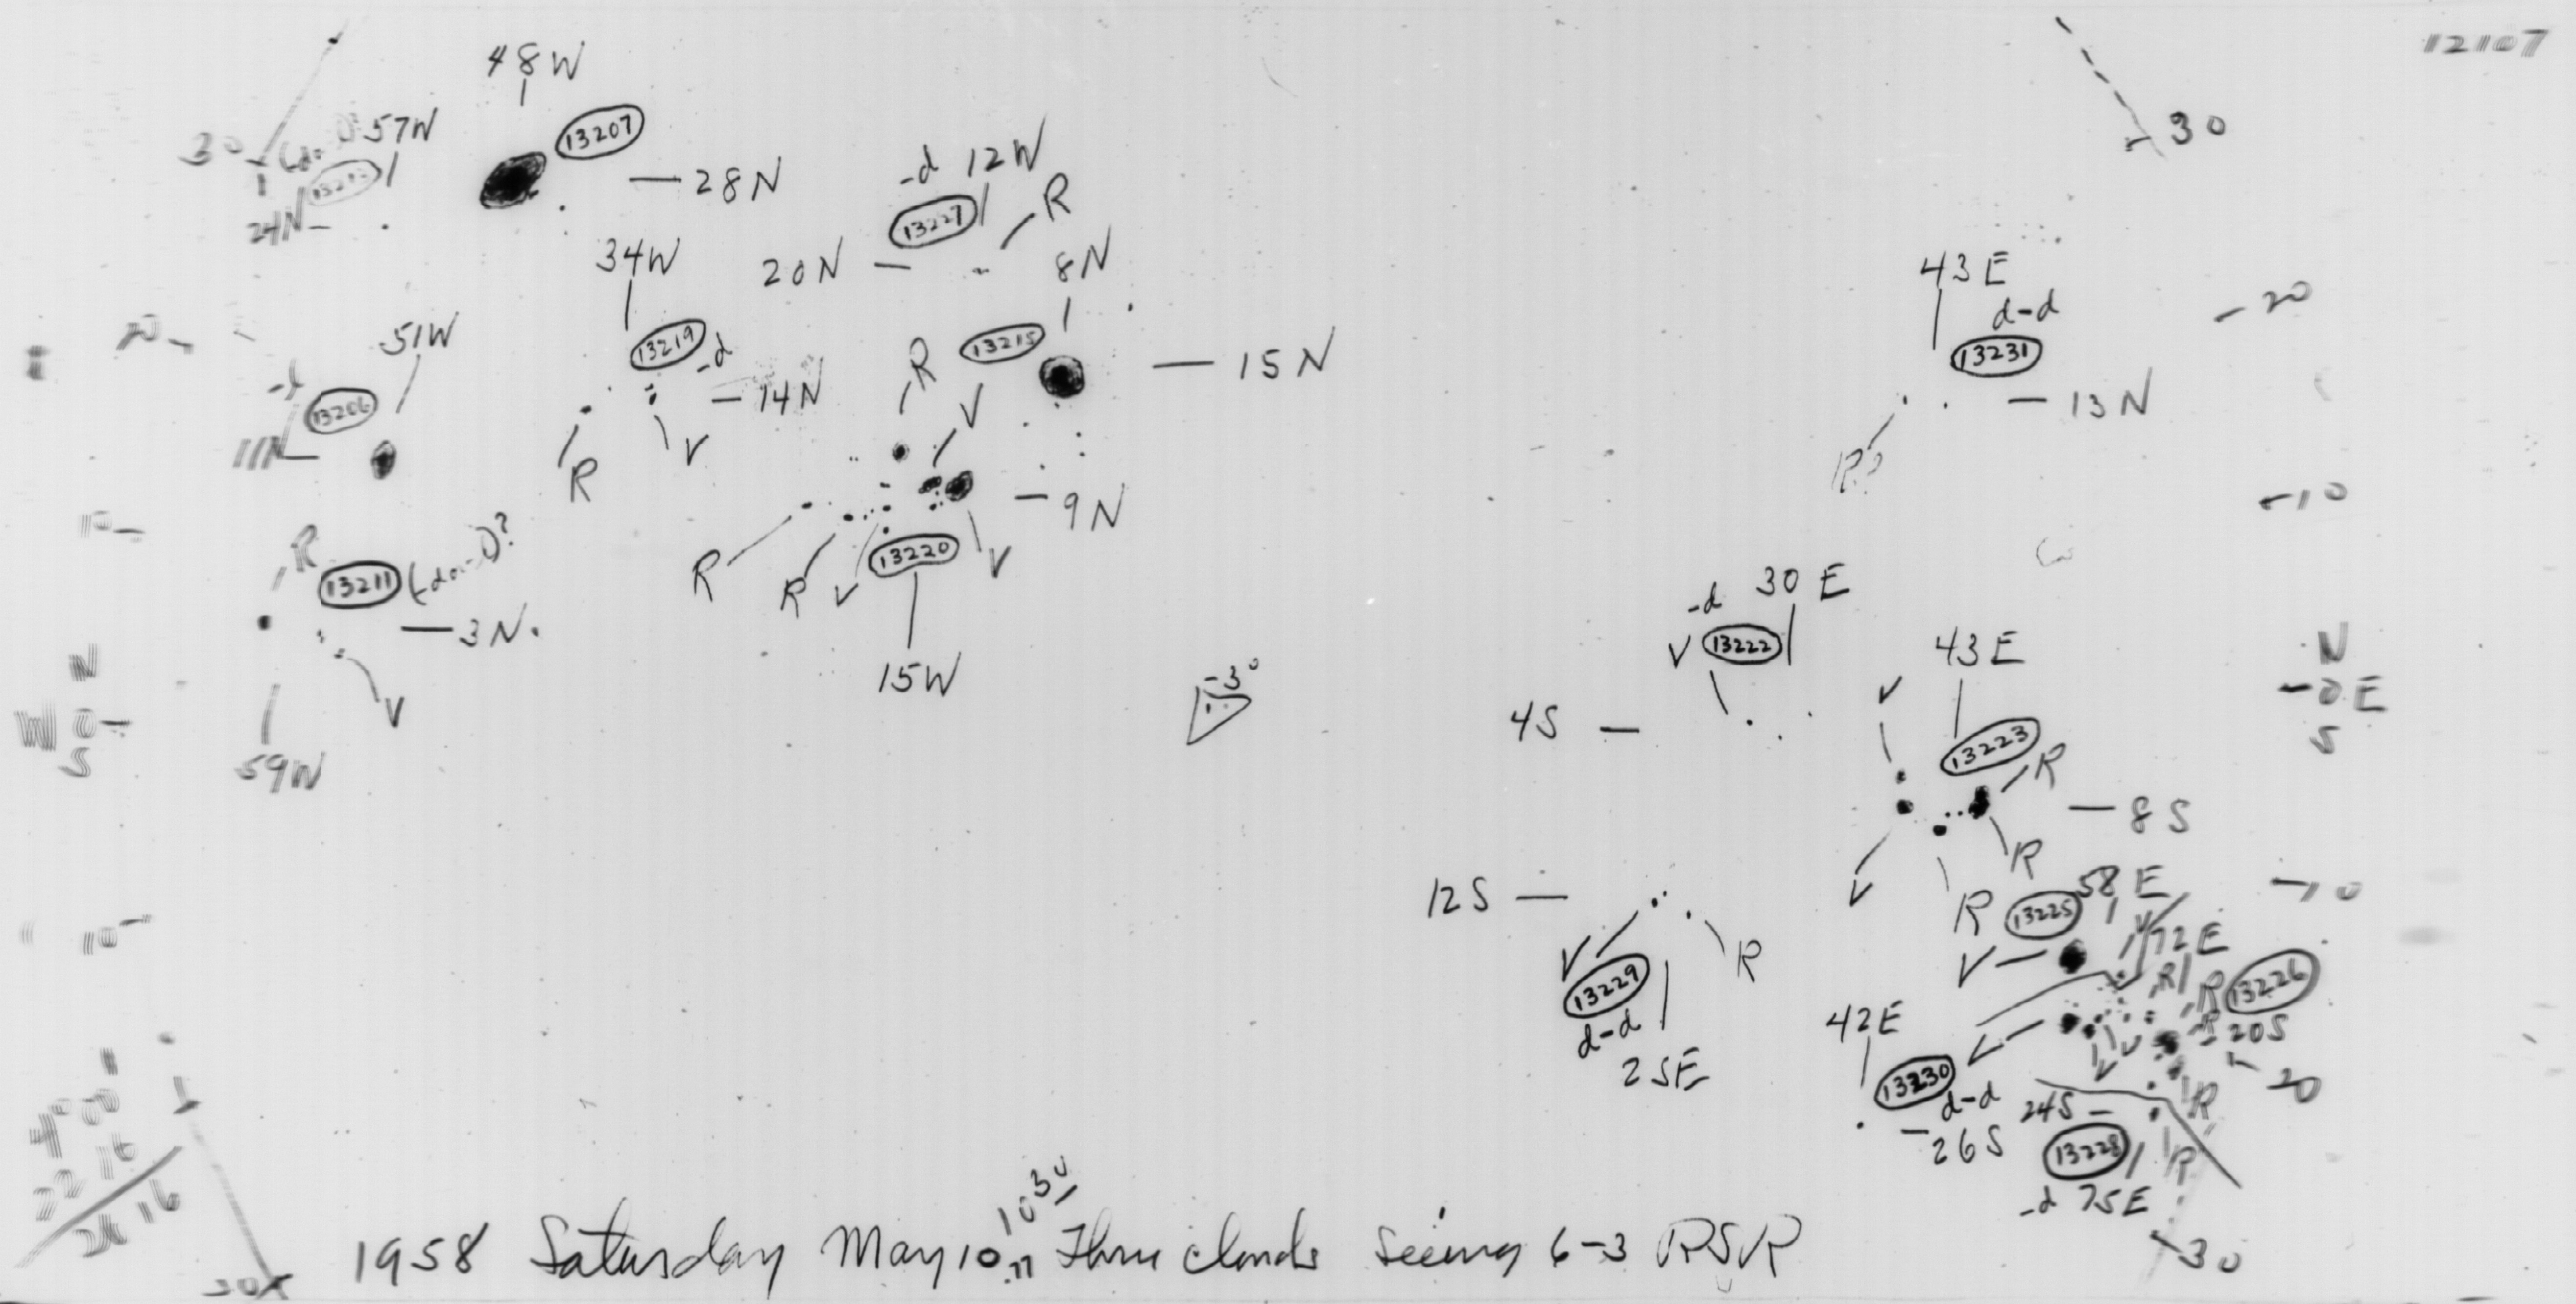 12107
48W
13207
28N
30
57W
24N
-d 12W
13227
R
20N
34W
8N
13219
-d
14N
R
V
13215
15N
R
V
51W
20
-d
13206
11N
30
43E
d-d
20
13231
13N
R?
10
R
13211
3N.
V
59W
9N
R
R
V
13220
V
15W
-3°
10
N
W 0
S
-d 30E
V 13222
4S
43E
V
13223
R
8S
V
R
R
N
-0 E
S
12S
V
R
13229
d-d
25E
58E
13225
V
-10
V
72E
R
R
13226
R
20S
V
V
V
-20
R
42E
13230
d-d
26S
24S
13228
R
-d 75E
-30
10
22 16
26 16
1958 Saturday May 10 10 30 Thru clouds Seeing 6-3 RSVR